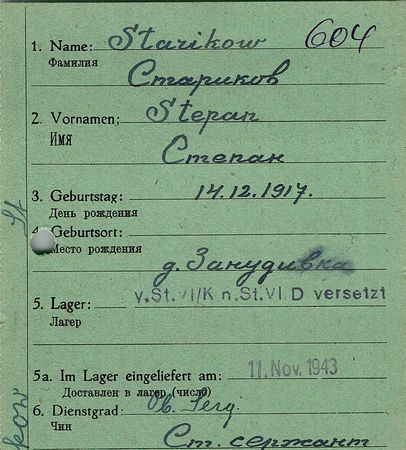 1. Name: Starikow 604
Фамилия
Стариков
2. Vornamen: Stepan
Имя
Степан
3. Geburtstag: 14.12.1917.
День рождения
4. Geburtsort:
Место рождения
д. Занудивка
v.St.VI/K n.St.VI D versetzt
5. Lager:
Лагерь
11. Nov. 1943
5a. Im Lager eingeliefert am:
Доставлен в лагерь (число)
6. Dienstgrad: Ob. Serg.
Чин
Ст. сержант